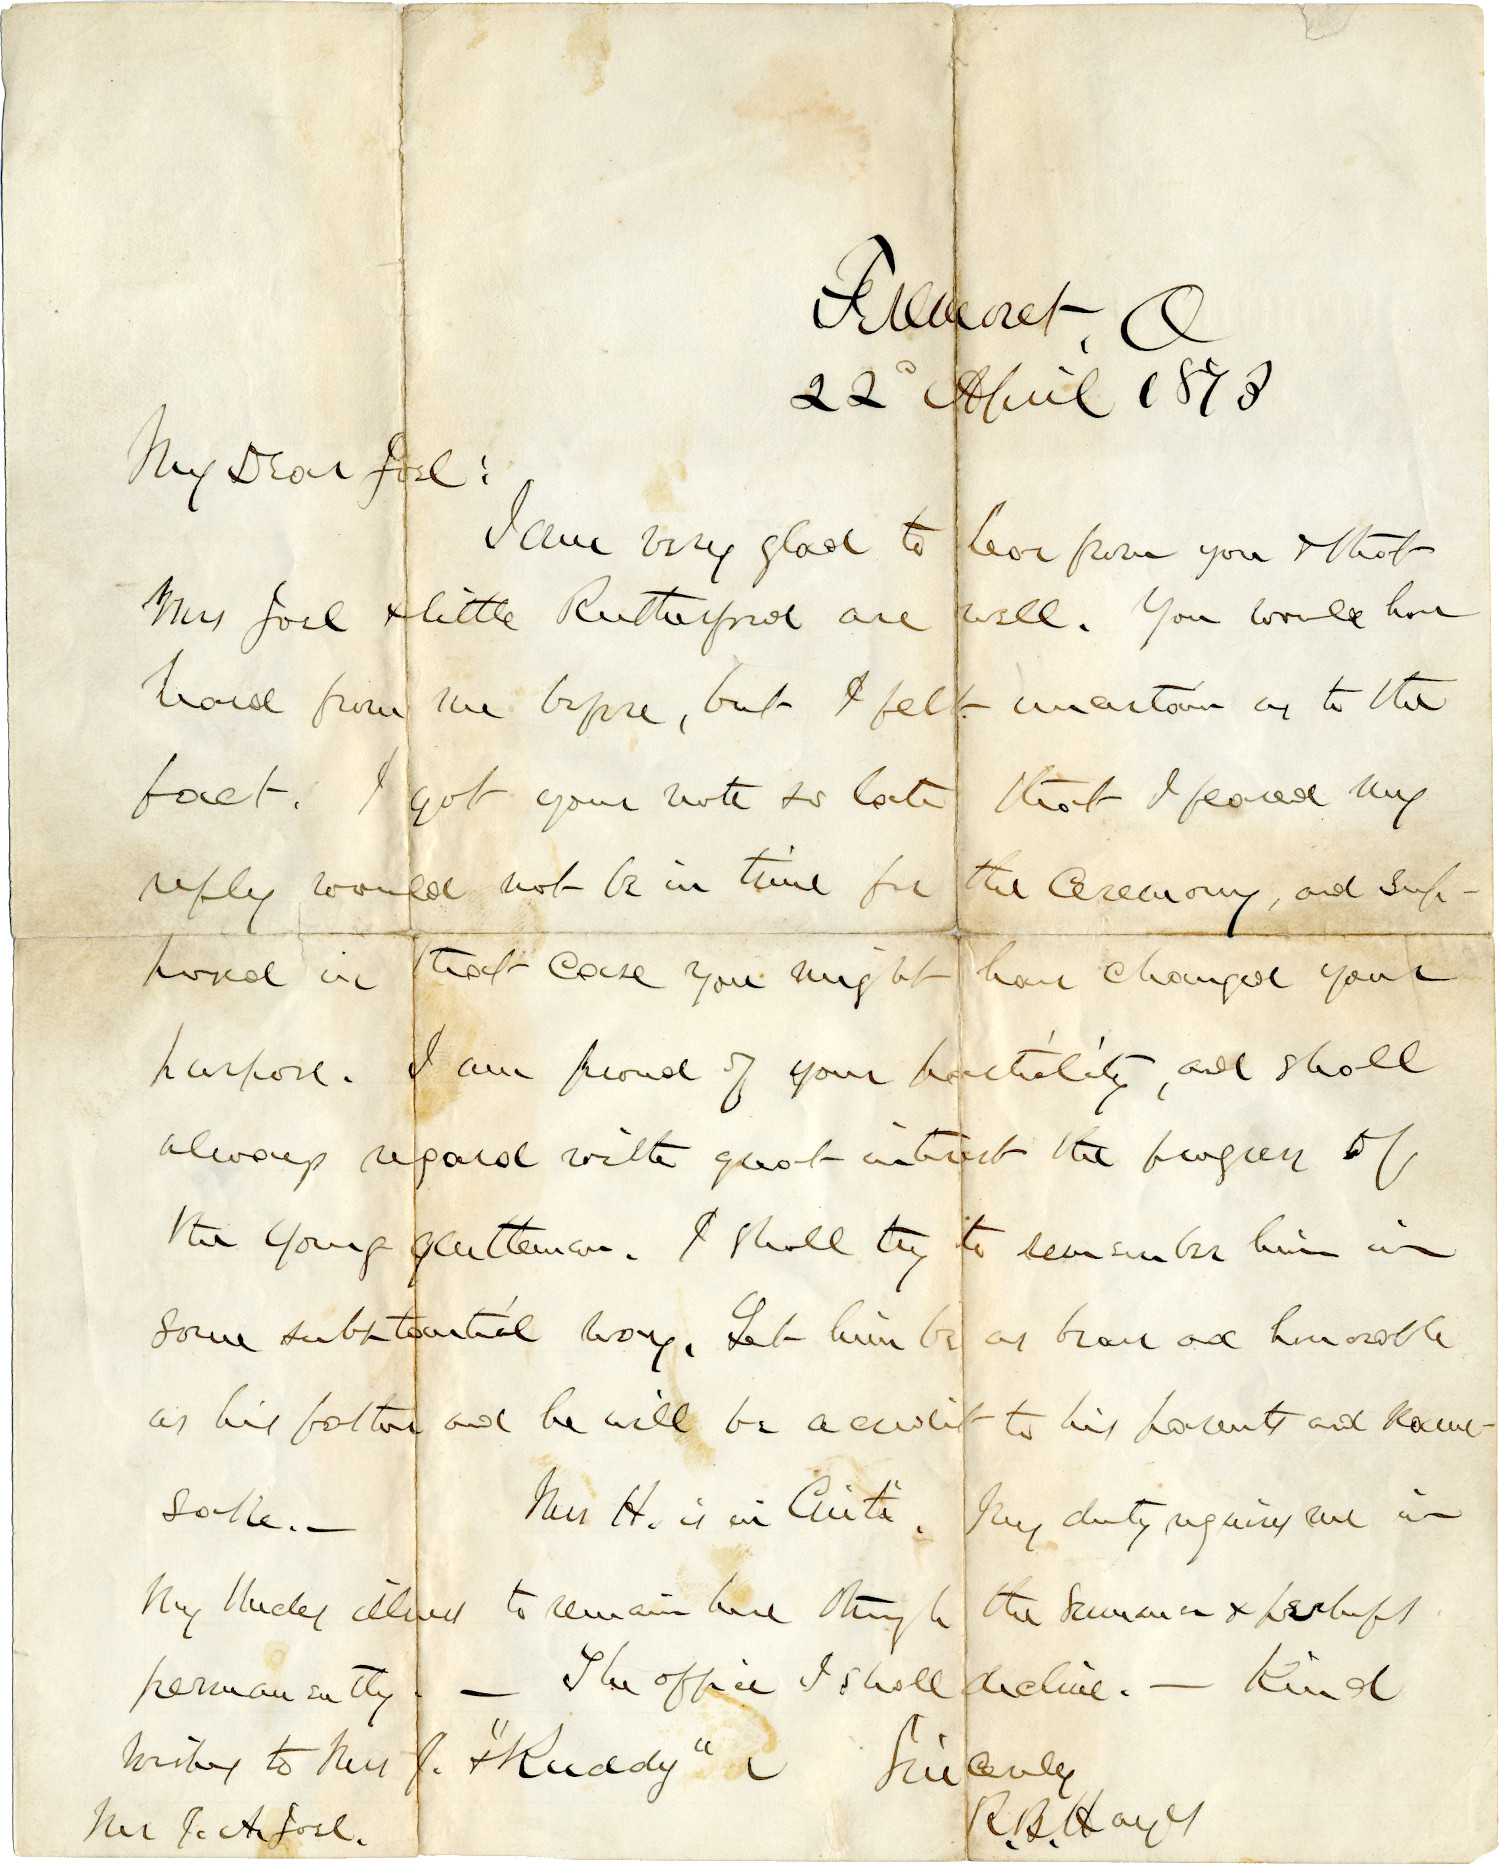 Fremont, O
22d April 1873
My Dear Joel:
I am very glad to hear from you & that
Mrs Joel & little Rutherford are well. You would have
heard from me before, but I felt uncertain as to the
fact. I got your note so late that I feared my
reply would not be in time for the ceremony, and sup-
posed in that case you might have changed your
purpose. I am proud of your partiality, and shall
always regard with great interest the progress of
the young gentleman. I shall try to remember him in
some substantial way. Let him be as brave and honorable
as his father and he will be a credit to his parents and name-
sake. — Mrs H. is in Cinti. My duty requires me in
my Uncles illness to remain here through the Summer & perhaps
permanently. — The office I shall decline. — Kind
wishes to Mrs J. & "Ruddy" Sincerely
R. B. Hayes
Mr J. A. Joel.